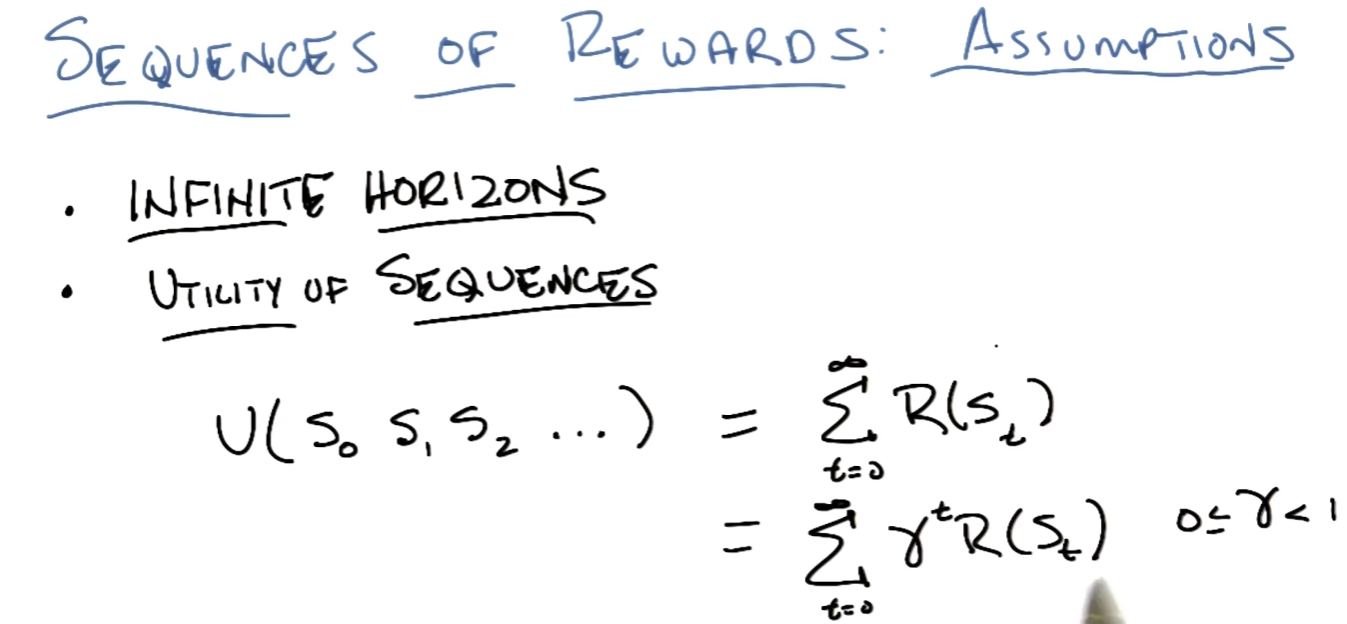 SEQUENCES OF REWARDS: ASSUMPTIONS
• INFINITE HORIZONS
• UTILITY OF SEQUENCES
U(S₀ S₁ S₂ ...) = ∑_{t=0}^{∞} R(S_t)
= ∑_{t=0}^{∞} γ^t R(S_t) 0≤γ<1